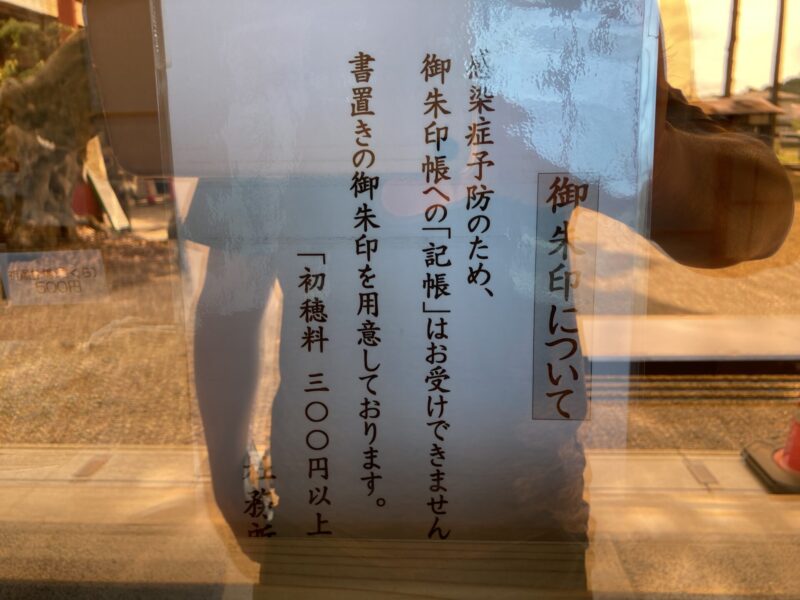 御朱印について
感染症予防のため、
御朱印帳への「記帳」はお受けできません
書置きの御朱印を用意しております。
「初穂料 三〇〇円以上
社務所
500円